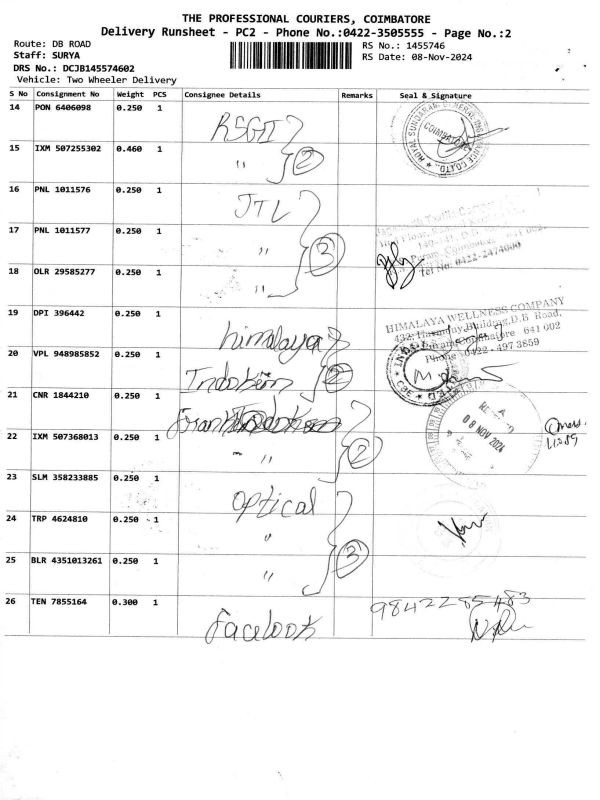 THE PROFESSIONAL COURIERS, COIMBATORE
Delivery Runsheet - PC2 - Phone No.:0422-3505555 - Page No.:2
Route: DB ROAD
RS No.: 1455746
Staff: SURYA
RS Date: 08-Nov-2024
DRS No.: DCJB145574602
Vehicle: Two Wheeler Delivery
S No Consignment No Weight PCS Consignee Details Remarks Seal & Signature
14 PON 6406098 0.250 1
RSGI
COIMBATORE
15 IXM 507255302 0.460 1
" 2
16 PNL 1011576 0.250 1
JTL
17 PNL 1011577 0.250 1
" 3
Tel No: 0422-2474600
18 OLR 29585277 0.250 1
"
19 DPI 396442 0.250 1
himalaya
HIMALAYA WELLNESS COMPANY
Building, D.B Road,
Coimbatore 641 002
Phone: 0422 - 497 3859
20 VPL 948985852 0.250 1
Indobem 2
21 CNR 1844210 0.250 1
Frank
08 NOV 2024
22 IXM 507368013 0.250 1
" 2
23 SLM 358233885 0.250 1
optical
24 TRP 4624810 0.250 1
"
25 BLR 4351013261 0.250 1
" 3
26 TEN 7855164 0.300 1
9842285483
facelook